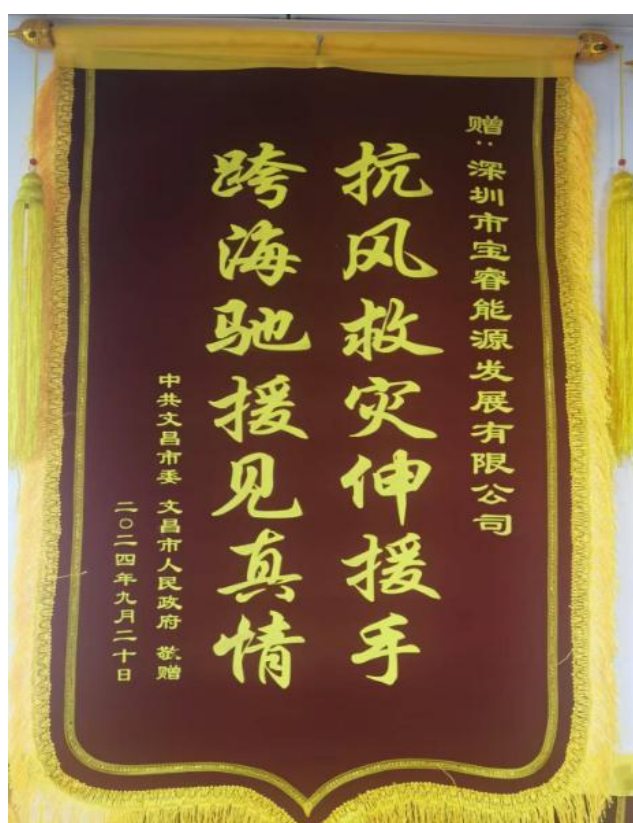 赠：深圳市宝睿能源发展有限公司
抗风救灾伸援手
跨海驰援见真情
中共文昌市委 文昌市人民政府 敬赠
二〇二四年九月二十日